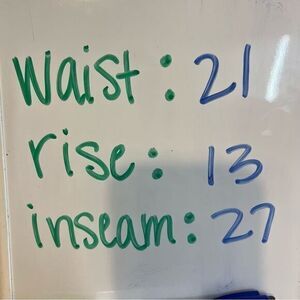 waist: 21
rise: 13
inseam: 27